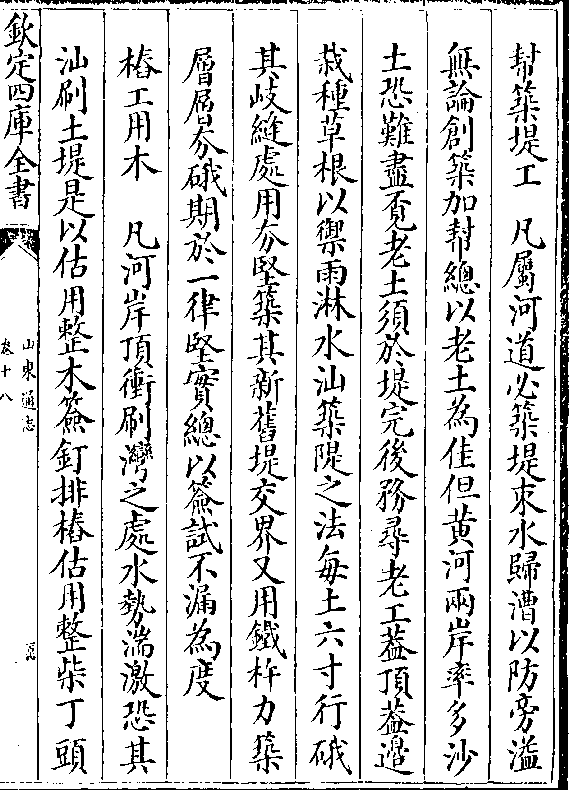 幇築堤工　凡屬河道必築堤束水歸漕以防旁溢
無論創築加幇總以老土為佳但黄河兩岸率多沙
土恐難盡覔老土須於堤完後務尋老工葢頂葢邉
栽種草根以禦雨淋水汕築隄之法每土六寸行硪
其歧縫處用夯堅築其新舊堤交界又用鐵杵力築
層層夯硪期於一律堅實總以簽試不漏為度
樁工用木　凡河岸頂衝刷灣之處水勢湍激恐其
汕刷土堤是以估用整木簽釘排樁估用整柴丁頭
欽定四庫全書
山東通志
卷十八